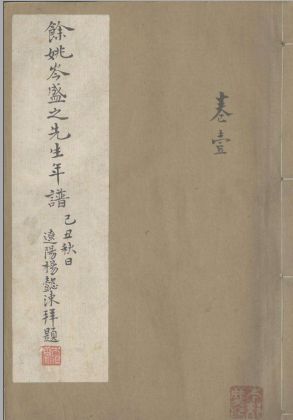 餘姚岑盛之先生年譜
己丑秋日
遼陽楊懿涑拜題
卷壹